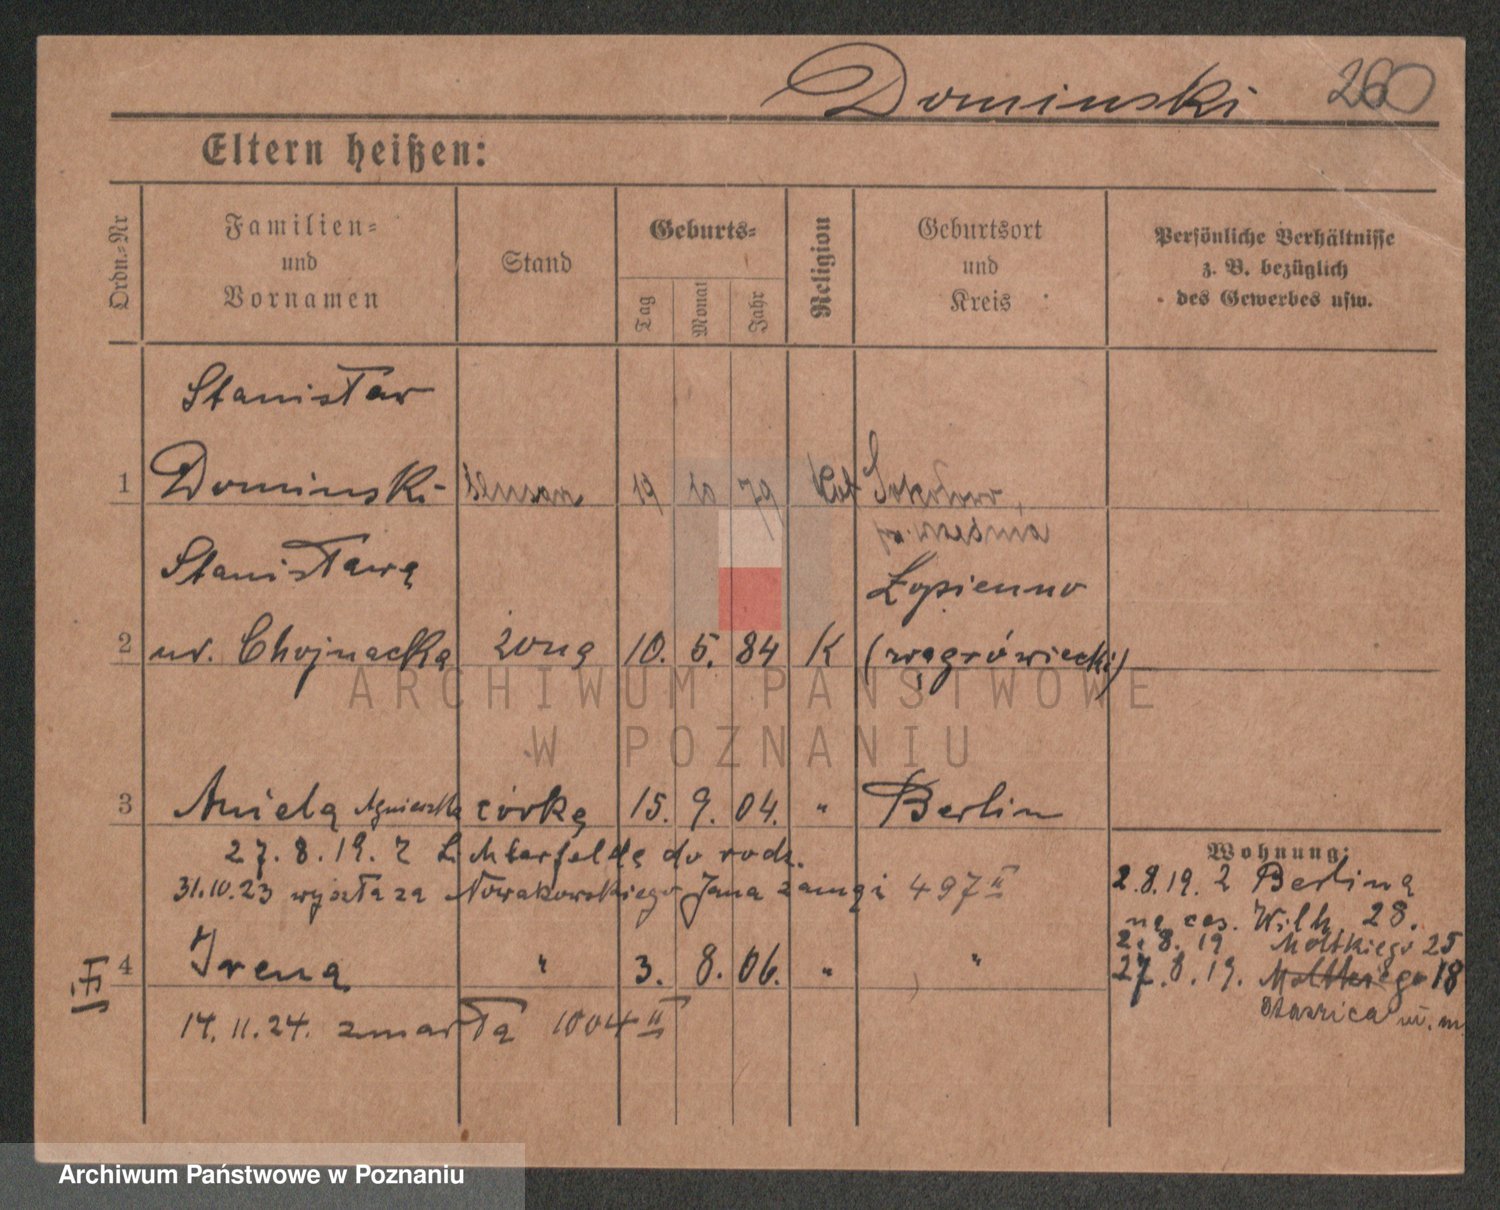 Dominski 260
Eltern heißen:
Ordn.-Nr
Familien-
und
Vornamen
Stand
Geburts-
Tag
Monat
Jahr
Religion
Geburtsort
und
Kreis
Persönliche Verhältnisse
z. B. bezüglich
des Gewerbes usw.
Stanisław
1 Dominski 19 10 79 kat Sokołowo,
Września
Stanisława Łopienno
2 ur. Chojnacka żona 10. 5. 84 K (wągrówiecki)
ARCHIWUM PAŃSTWOWE
W POZNANIU
3 Aniela Agnieszka córka 15. 9. 04. " Berlin
27.8.19. z Lichterfelde do rodz.
31.10.23 wyszła za Nowakowskiego Jana 497 II
4 Irena " 3. 8. 06. " "
14.11.24. zmarła 1004 II
Wohnung:
2.8.19. z Berlina
na ces. Wilh 28.
2.8.19 Moltkiego 25
27.8.19. Moltkiego 18
Staszica
Archiwum Państwowe w Poznaniu